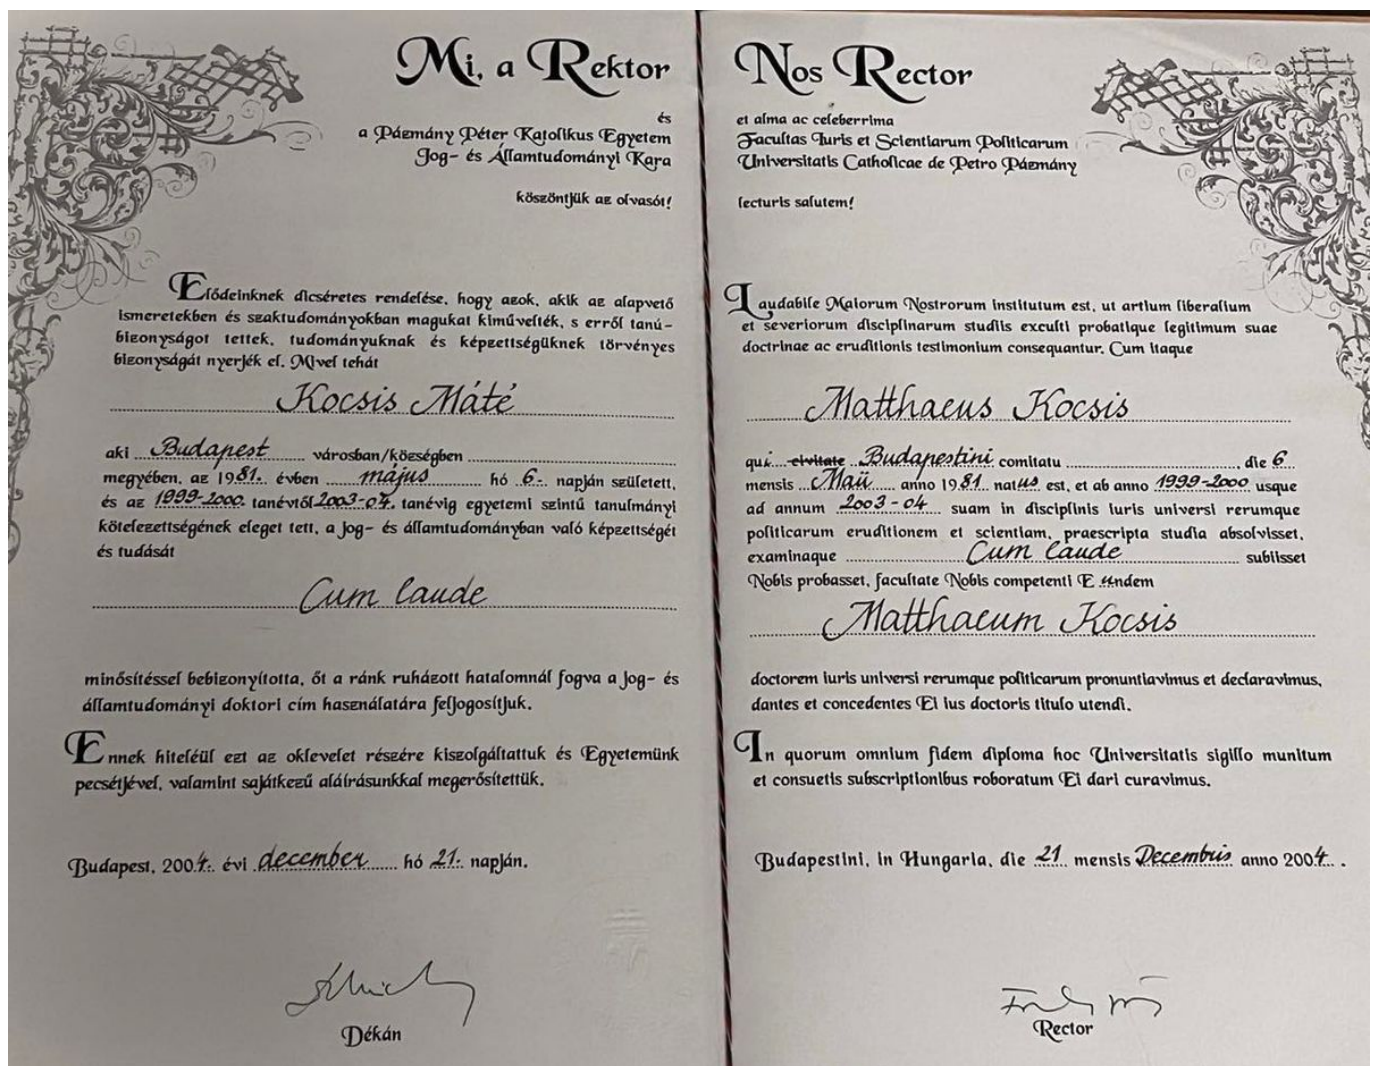 Mi, a Rektor
és
a Pázmány Péter Katolikus Egyetem
Jog- és Államtudományi Kara
köszöntjük az olvasót!
Elődeinknek dicséretes rendelése, hogy azok, akik az alapvető
ismeretekben és szaktudományokban magukat kiművelték, s erről tanú-
bizonyságot tettek, tudományuknak és képzettségüknek törvényes
bizonyságát nyerjék el. Mivel tehát
Kocsis Máté
aki Budapest városban/községben
megyében, az 1981. évben május hó 6. napján született,
és az 1999-2000. tanévtől 2003-04. tanévig egyetemi szintű tanulmányi
kötelezettségének eleget tett, a jog- és államtudományban való képzettségét
és tudását
Cum laude
minősítéssel bebizonyította, őt a ránk ruházott hatalomnál fogva a jog- és
államtudományi doktori cím használatára feljogosítjuk.
Ennek hiteléül ezt az oklevelet részére kiszolgáltattuk és Egyetemünk
pecsétjével, valamint sajátkezű aláírásunkkal megerősítettük.
Budapest, 2004. évi december hó 21. napján.
Dékán
Nos Rector
et alma ac celeberrima
Facultas Iuris et Scientiarum Politicarum
Universitatis Catholicae de Petro Pázmány
lecturis salutem!
Laudabile Maiorum Nostrorum institutum est, ut artium liberalium
et severiorum disciplinarum studiis exculti probatique legitimum suae
doctrinae ac eruditionis testimonium consequantur. Cum itaque
Matthaeus Kocsis
qui civitate Budapestini comitatu die 6
mensis Maii anno 1981. natus est, et ab anno 1999-2000 usque
ad annum 2003-04 suam in disciplinis iuris universi rerumque
politicarum eruditionem et scientiam, praescripta studia absolvisset,
examinaque Cum laude subiisset
Nobis probasset, facultate Nobis competenti Eundem
Matthaeum Kocsis
doctorem iuris universi rerumque politicarum pronuntiavimus et declaravimus,
dantes et concedentes Ei ius doctoris titulo utendi.
In quorum omnium fidem diploma hoc Universitatis sigillo munitum
et consuetis subscriptionibus roboratum Ei dari curavimus.
Budapestini, in Hungaria, die 21 mensis Decembris anno 2004.
Rector